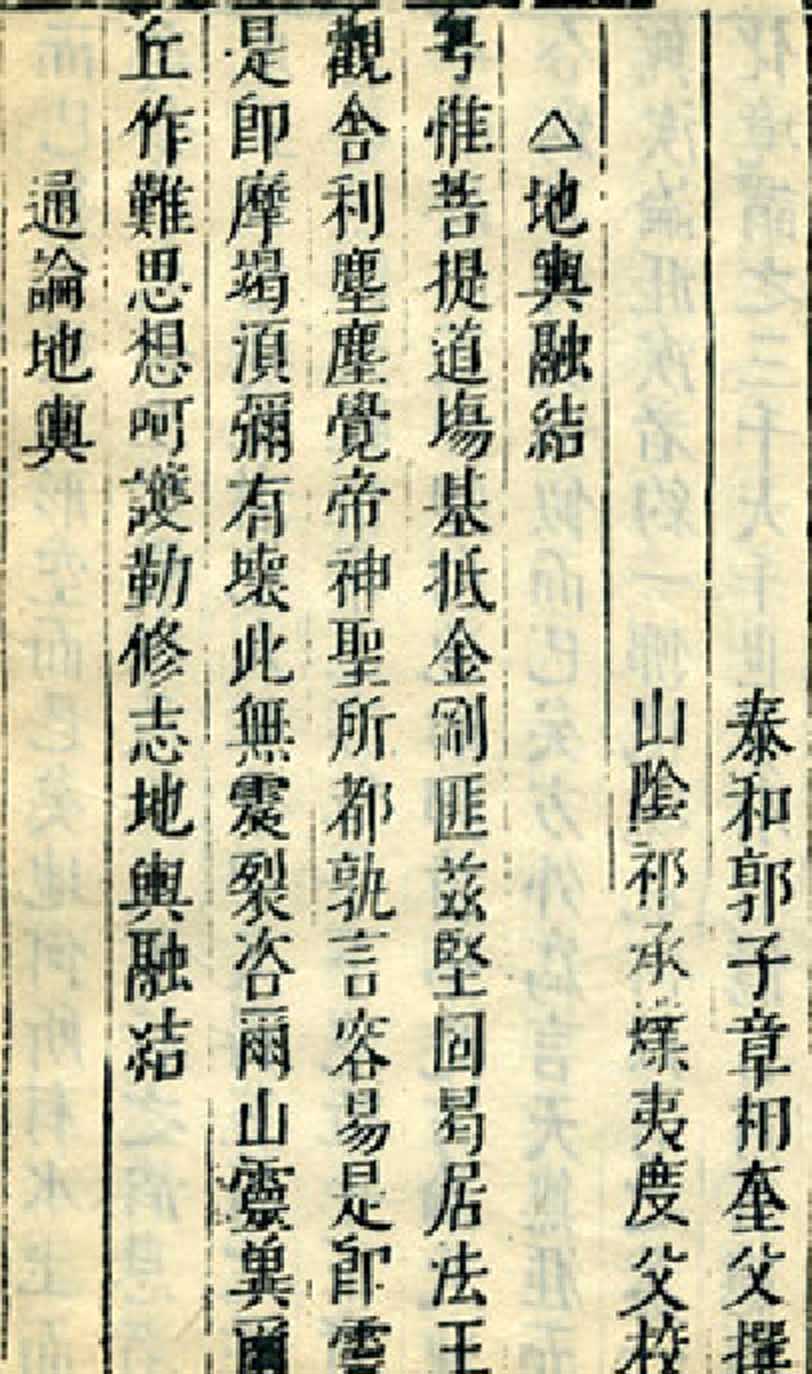 泰和郭子章相奎父撰
山陰祁承㸁夷度父校
△地輿融結
粤惟菩提道塲基抵金剛匪茲堅固曷居法王
觀舍利塵塵覺帝神聖所都孰言容易是即靈
是即摩竭湏彌有壞此無震裂咨爾山靈巽爾
丘作難思想呵護勒修志地輿融結
通論地輿